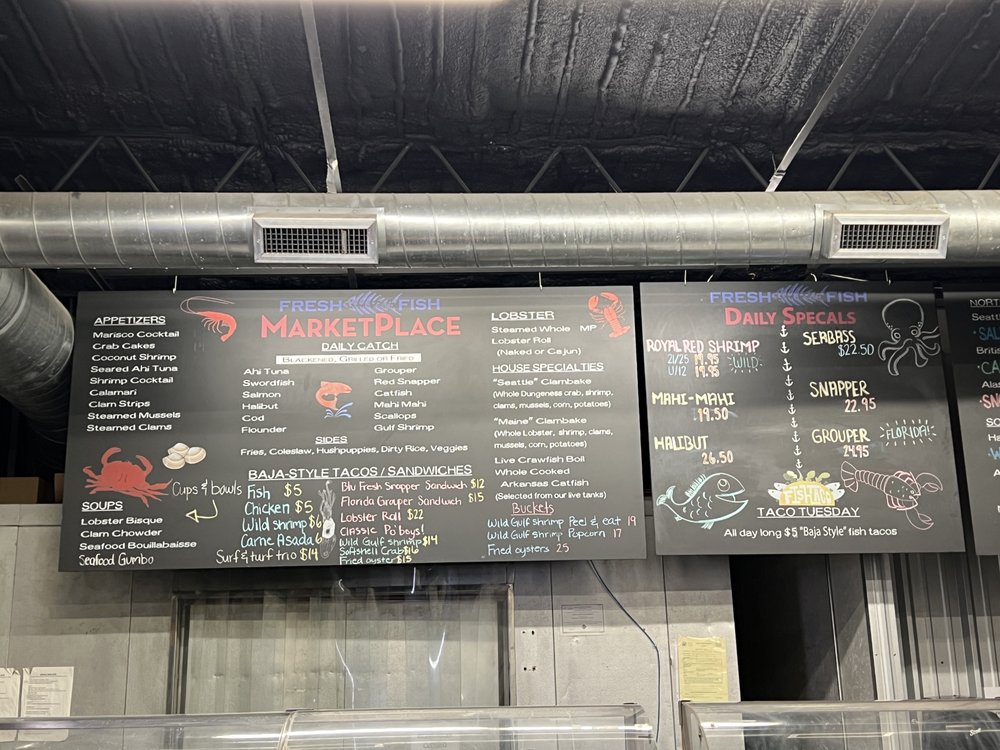 FRESH FISH
MARKETPLACE
APPETIZERS
Marisco Cocktail
Crab Cakes
Coconut Shrimp
Seared Ahi Tuna
Shrimp Cocktail
Calamari
Clam Strips
Steamed Mussels
Steamed Clams
Cups & bowls
SOUPS
Lobster Bisque
Clam Chowder
Seafood Bouillabaisse
Seafood Gumbo
DAILY CATCH
BLACKENED, GRILLED OR FRIED
Ahi Tuna
Swordfish
Salmon
Halibut
Cod
Flounder
Grouper
Red Snapper
Catfish
Mahi Mahi
Scallops
Gulf Shrimp
SIDES
Fries, Coleslaw, Hushpuppies, Dirty Rice, Veggies
BAJA-STYLE TACOS / SANDWICHES
Fish $5
Chicken $5
Wild shrimp $6
Carne Asada 6
Surf & turf trio $14
Blu Fresh Snapper Sandwich $12
Florida Grouper Sandwich $15
Lobster Roll $22
Classic Po'boys!
Wild Gulf shrimp $14
Softshell Crab $16
Fried oyster $15
LOBSTER
Steamed Whole MP
Lobster Roll
(Naked or Cajun)
HOUSE SPECIALTIES
"Seattle" Clambake
(Whole Dungeness crab, shrimp,
clams, mussels, corn, potatoes)
"Maine" Clambake
(Whole Lobster, shrimp, clams,
mussels, corn, potatoes)
Live Crawfish Boil
Whole Cooked
Arkansas Catfish
(Selected from our live tanks)
Buckets
Wild Gulf shrimp Peel & eat 19
Wild Gulf shrimp Popcorn 17
Fried oysters 25
FRESH FISH
DAILY SPECALS
ROYAL RED SHRIMP
21/25 19.95
U/12 19.95
WILD
MAHI-MAHI
19.50
HALIBUT
26.50
SEABASS
$22.50
SNAPPER
22.95
GROUPER
24.95
FLORIDA!
FISH TACO
TACO TUESDAY
All day long $5 "Baja Style" fish tacos
NORT
Seatt
Britis
Alas